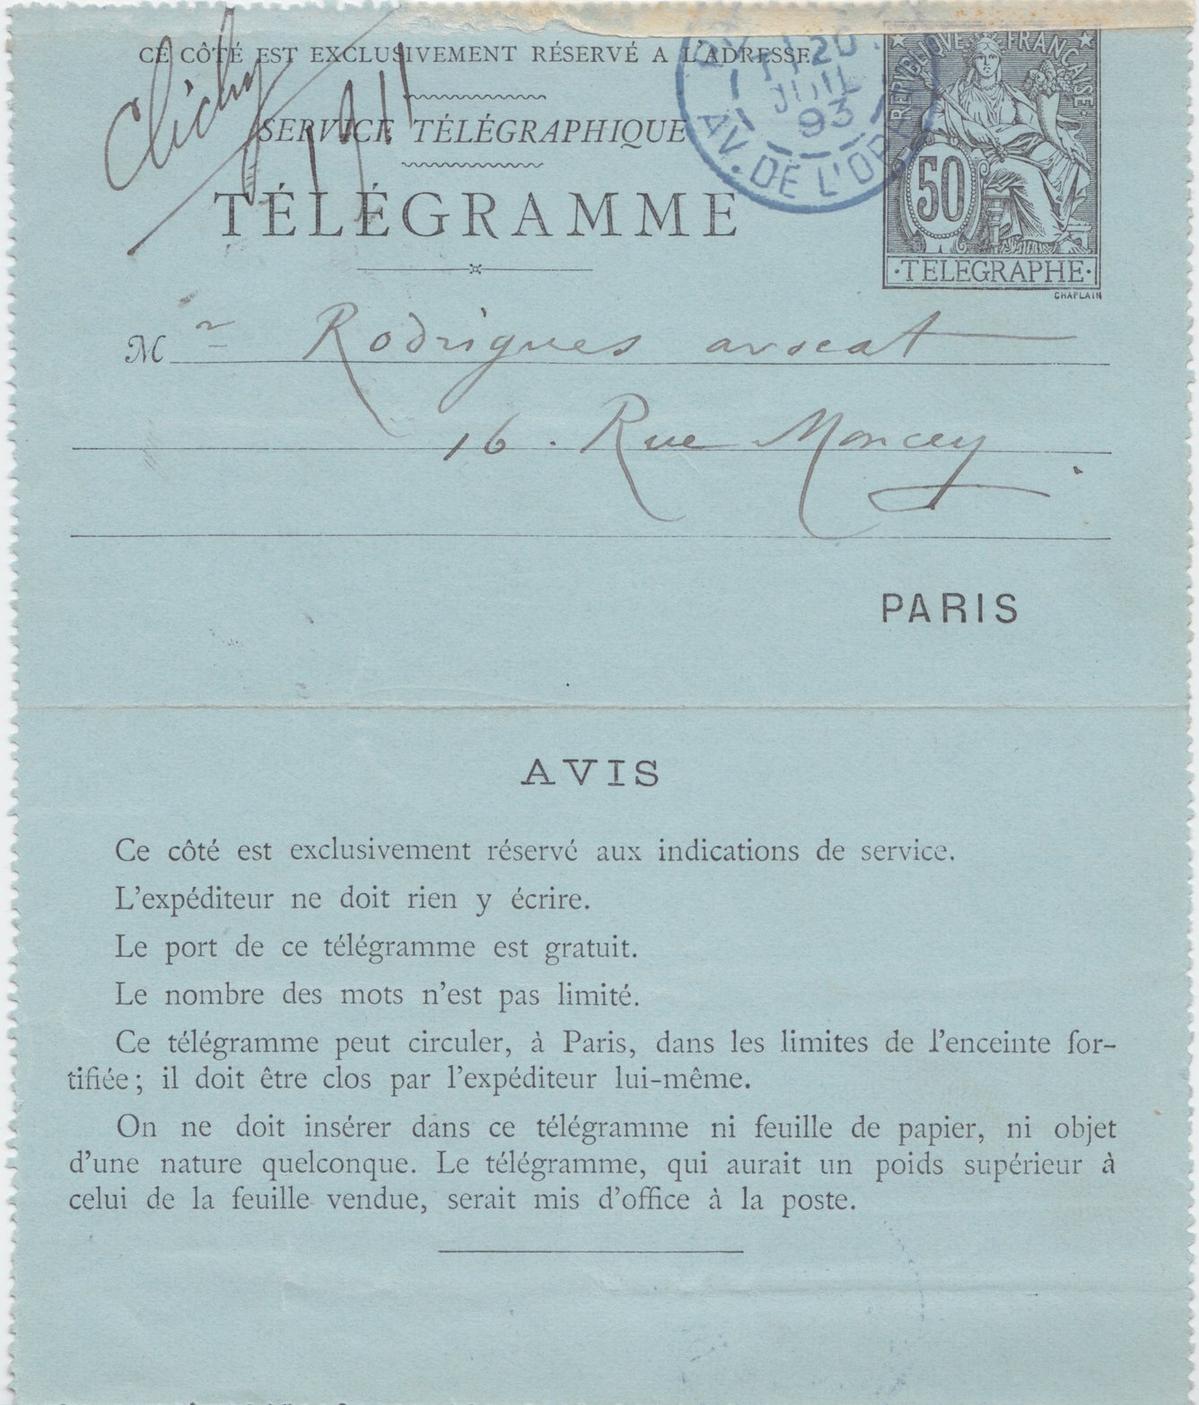 CE CÔTÉ EST EXCLUSIVEMENT RÉSERVÉ A L'ADRESSE
Clichy
SERVICE TÉLÉGRAPHIQUE
TÉLÉGRAMME
20
JUIL
93
AV. DE L'OP
REPUBLIQUE FRANÇAISE
50
·TELEGRAPHE·
CHAPLAIN
Mr Rodrigues avocat
16. Rue Moncey
PARIS
AVIS
Ce côté est exclusivement réservé aux indications de service.
L'expéditeur ne doit rien y écrire.
Le port de ce télégramme est gratuit.
Le nombre des mots n'est pas limité.
Ce télégramme peut circuler, à Paris, dans les limites de l'enceinte for-
tifiée; il doit être clos par l'expéditeur lui-même.
On ne doit insérer dans ce télégramme ni feuille de papier, ni objet
d'une nature quelconque. Le télégramme, qui aurait un poids supérieur à
celui de la feuille vendue, serait mis d'office à la poste.